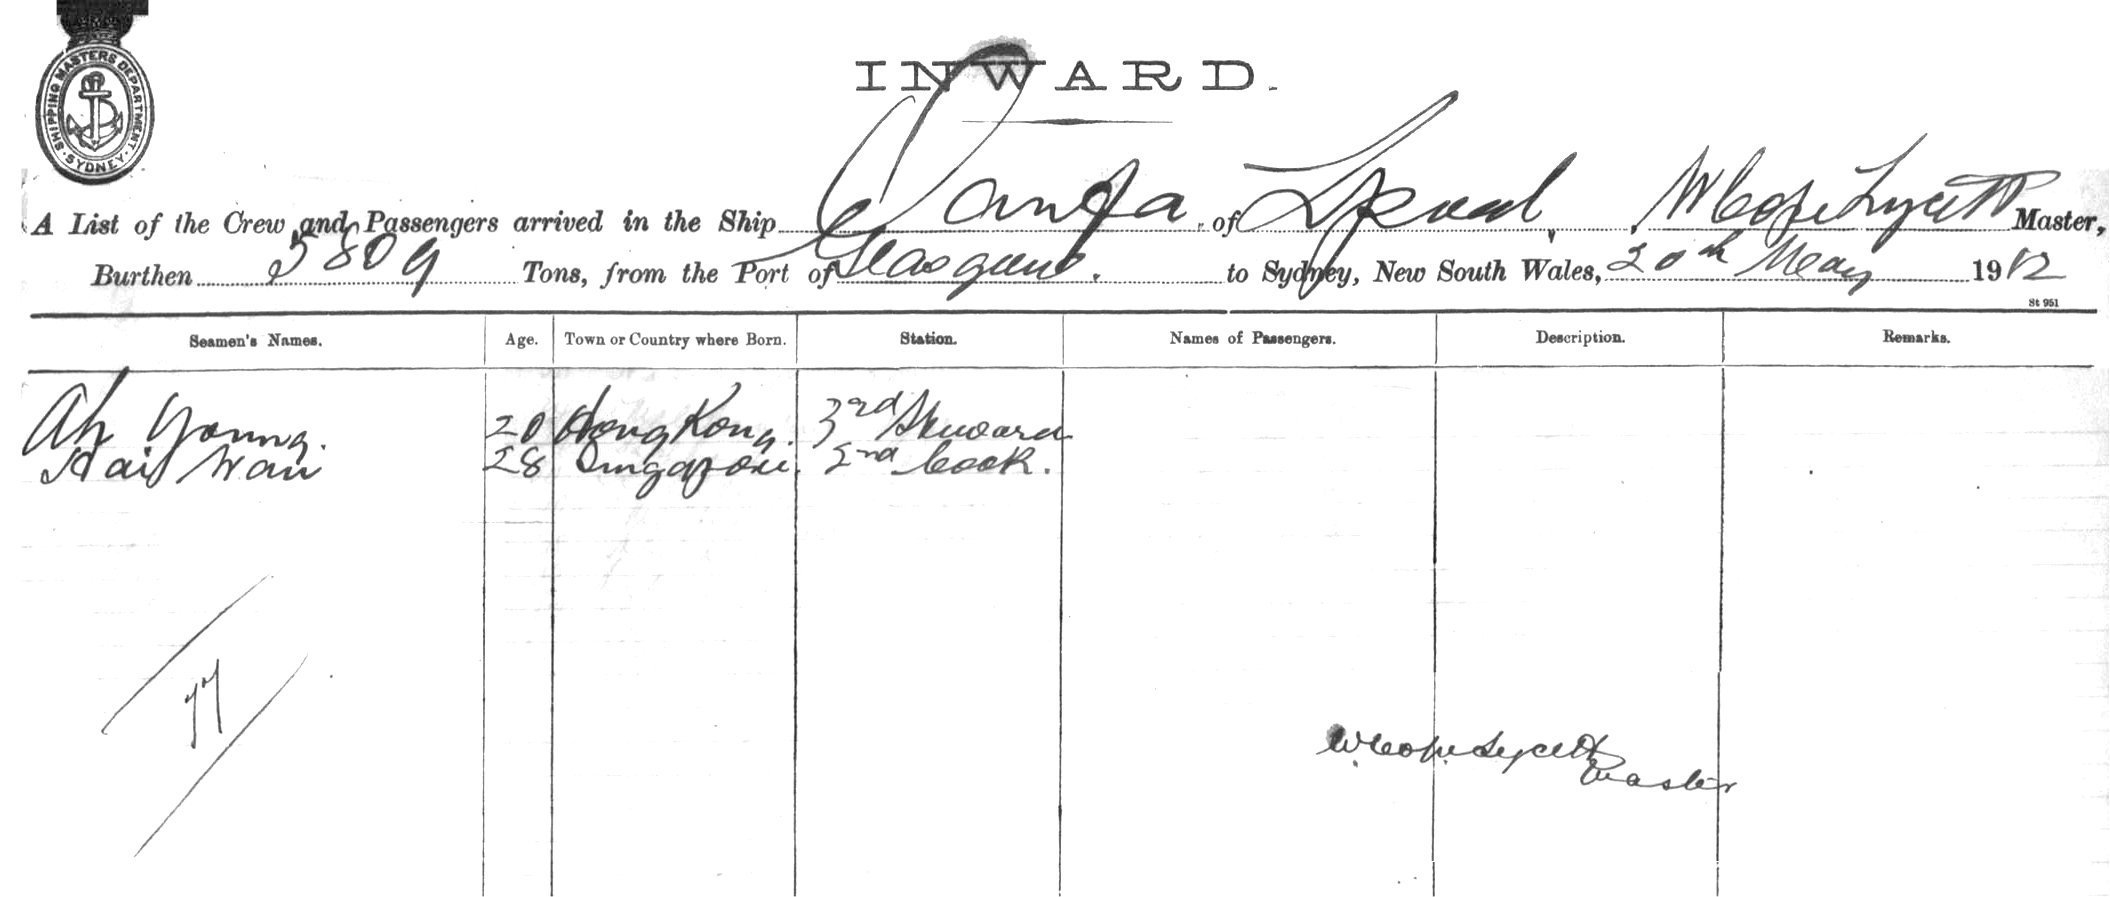 SHIPPING MASTERS DEPARTMENT · SYDNEY ·
INWARD.
A List of the Crew and Passengers arrived in the Ship Oanfa of Lpool, W Cope Lycett Master,
Burthen 5809 Tons, from the Port of Glasgow. to Sydney, New South Wales, 20th May 1912
St 951
Seamen's Names. Age. Town or Country where Born. Station. Names of Passengers. Description. Remarks.
Ah Young. 20 Hong Kong. 3rd Steward
28 Singapore. 2nd Cook.
77
W. Cope Lycett
Master